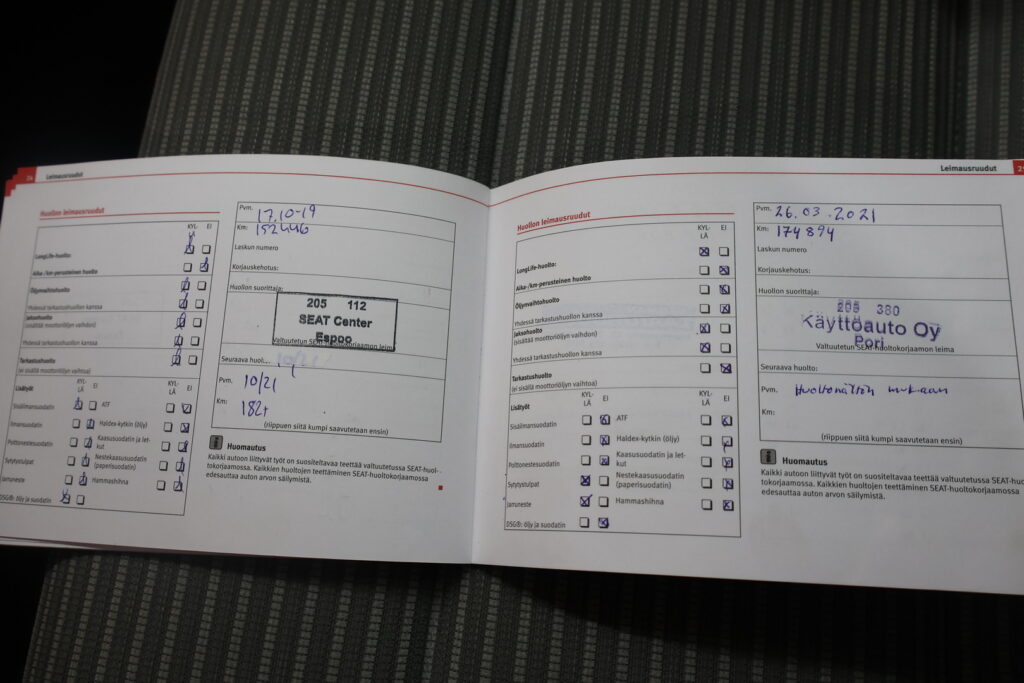 24 Leimausruudut
Huollon leimausruudut
KYL-
LÄ EI
LongLife-huolto:
Aika-/km-perusteinen huolto
Öljynvaihtohuolto
Yhdessä tarkastushuollon kanssa
Jaksohuolto
(sisältää moottoriöljyn vaihdon)
Yhdessä tarkastushuollon kanssa
Tarkastushuolto
(ei sisällä moottoriöljyn vaihtoa)
Lisätyöt
KYL-
LÄ EI
KYL-
LÄ EI
Sisäilmansuodatin ATF
Ilmansuodatin Haldex-kytkin (öljy)
Polttonestesuodatin Kaasusuodatin ja let-
kut
Sytytystulpat Nestekaasusuodatin
(paperisuodatin)
Jarruneste Hammashihna
DSG®: öljy ja suodatin
Pvm. 17.10-19
Km: 152446
Laskun numero
Korjauskehotus:
Huollon suorittaja:
205 112
SEAT Center
Espoo
Valtuutetun SEAT-huoltokorjaamon leima
Seuraava huol...
Pvm. 10/21
Km: 182t
(riippuen siitä kumpi saavutetaan ensin)
Huomautus
Kaikki autoon liittyvät työt on suositeltavaa teettää valtuutetussa SEAT-huol-
tokorjaamossa. Kaikkien huoltojen teettäminen SEAT-huoltokorjaamossa
edesauttaa auton arvon säilymistä.
Leimausruudut
Huollon leimausruudut
KYL-
LÄ EI
LongLife-huolto:
Aika-/km-perusteinen huolto
Öljynvaihtohuolto
Yhdessä tarkastushuollon kanssa
Jaksohuolto
(sisältää moottoriöljyn vaihdon)
Yhdessä tarkastushuollon kanssa
Tarkastushuolto
(ei sisällä moottoriöljyn vaihtoa)
Lisätyöt
KYL-
LÄ EI
KYL-
LÄ EI
Sisäilmansuodatin ATF
Ilmansuodatin Haldex-kytkin (öljy)
Polttonestesuodatin Kaasusuodatin ja let-
kut
Sytytystulpat Nestekaasusuodatin
(paperisuodatin)
Jarruneste Hammashihna
DSG®: öljy ja suodatin
Pvm. 26.03.2021
Km: 174894
Laskun numero
Korjauskehotus:
Huollon suorittaja:
205 380
Käyttöauto Oy
Pori
Valtuutetun SEAT-huoltokorjaamon leima
Seuraava huolto:
Pvm. Huoltonäytön mukaan
Km:
(riippuen siitä kumpi saavutetaan ensin)
Huomautus
Kaikki autoon liittyvät työt on suositeltavaa teettää valtuutetussa SEAT-huo
tokorjaamossa. Kaikkien huoltojen teettäminen SEAT-huoltokorjaamossa
edesauttaa auton arvon säilymistä.